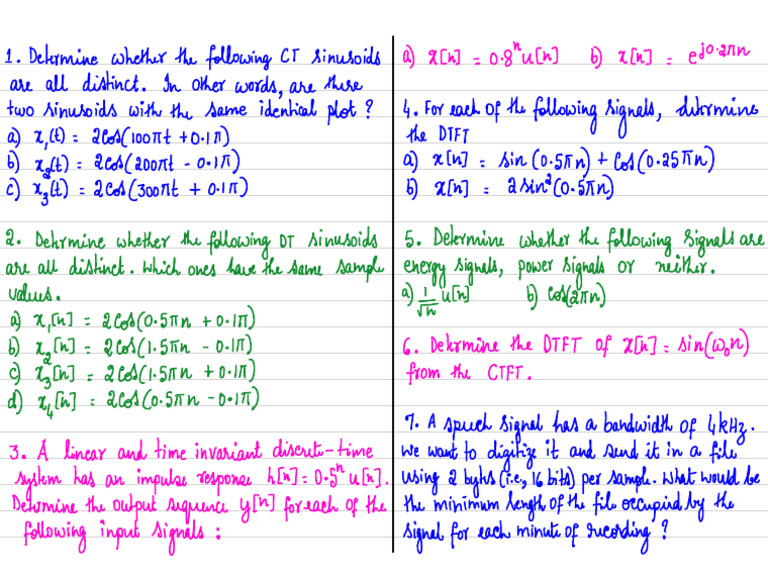 1. Determine whether the following CT sinusoids
are all distinct. In other words, are there
two sinusoids with the same identical plot ?
a) x₁(t) = 2cos(100πt + 0.1π)
b) x₂(t) = 2cos(200πt - 0.1π)
c) x₃(t) = 2cos(300πt + 0.1π)
2. Determine whether the following DT sinusoids
are all distinct. Which ones have the same sample
values.
a) x₁[n] = 2cos(0.5πn + 0.1π)
b) x₂[n] = 2cos(1.5πn - 0.1π)
c) x₃[n] = 2cos(1.5πn + 0.1π)
d) x₄[n] = 2cos(0.5πn - 0.1π)
3. A linear and time invariant discrete-time
system has an impulse response h[n] = 0.5ⁿ u[n].
Determine the output sequence y[n] for each of the
following input signals :
a) x[n] = 0.8ⁿ u[n] b) x[n] = e^{j0.2πn}
4. For each of the following signals, determine
the DTFT
a) x[n] = sin(0.5πn) + cos(0.25πn)
b) x[n] = 2sin²(0.5πn)
5. Determine whether the following signals are
energy signals, power signals or neither.
a) 1/√n u[n] b) cos(2πn)
6. Determine the DTFT of x[n] = sin(ω₀n)
from the CTFT.
7. A speech signal has a bandwidth of 4kHz.
We want to digitize it and send it in a file
using 2 bytes (i.e., 16 bits) per sample. What would be
the minimum length of the file occupied by the
signal for each minute of recording ?